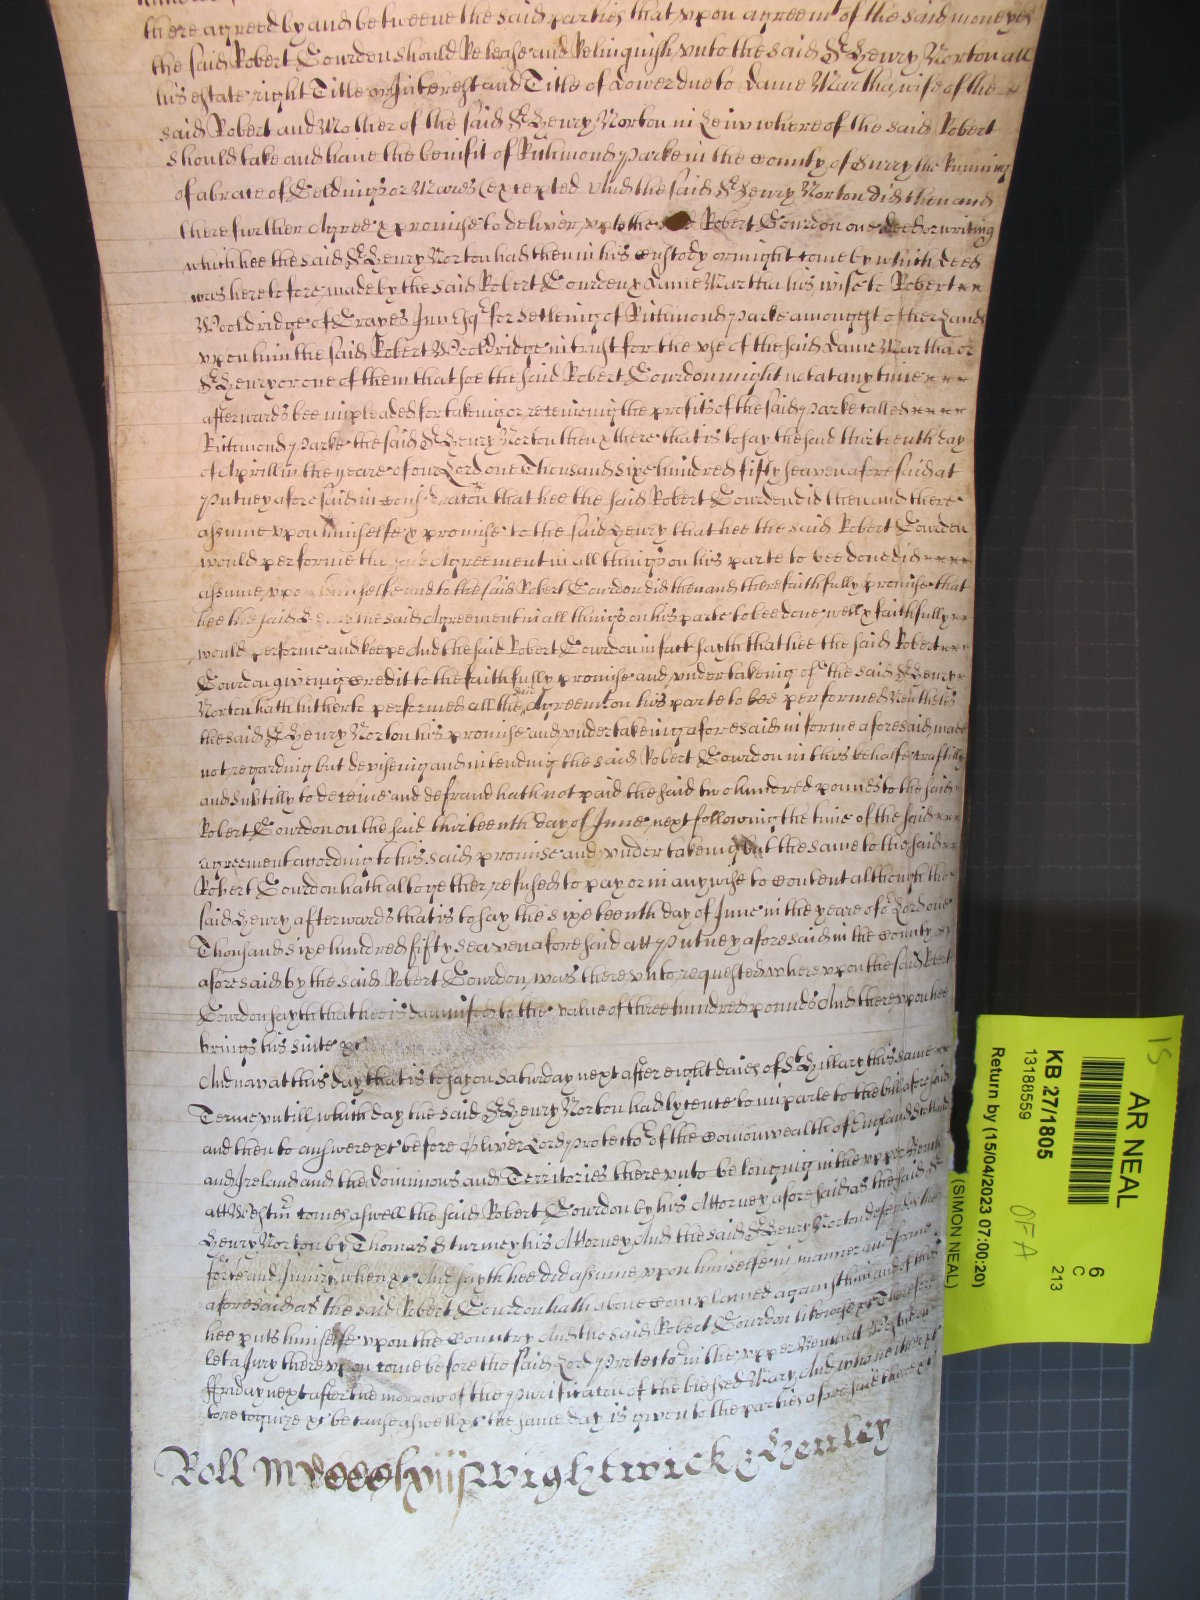 there agreed by and betweene the said parties that upon agreemt of the said moneyes
the said Robert Gourdon should Release and Relinquish unto the said Sr Henry Norton all
his estate right Title or Interest and Title of Dower due to Dame Martha wife of the
said Robert and Mother of the said Sr Henry Norton in Leiw whereof the said Robert
should take and have the benifit of Richmond Parke in the County of Surry the Running
of a brace of Geldings or Mares excepted And the said Sr Henry Norton did then and
there further Agree & promise to deliver up to the Robert Gourdon one deed or writing
which hee the said Sr Henry Norton had then in his custody or might come by which deed
was heretofore made by the said Robert Gourdon & Dame Martha his wife to Robert
Wooldridge of Grayes Inn Esqr for setleing of Richmond Parke amongest other Lands
upon him the said Robert Wooldridge in trust for the use of the said Dame Martha or
Sr Henry or one of them that soe the said Robert Gourdon might not at any time
afterwards bee impleaded for takeing or receiveing the profits of the said Parke called
Richmond Parke the said Sr Henry Norton then & there that is to say the said thirteenth day
of Aprill in the yeare of our Lord one Thousand sixe hundred fifty seaven aforesaid at
Putney aforesaid in consideration that hee the said Robert Gourdon did then and there
assume upon himselfe & promise to the said Henry that hee the said Robert Gourdon
would performe the said Agreement in all things on his parte to bee done did
assume upon himselfe and to the said Robert Gourdon did then and there faithfully promise that
hee the said Henry the said Agreement in all things on his parte to bee done well & faithfully
would performe and keepe And the said Robert Gourdon in fact sayth that hee the said Robert
Gourdon giveing credit to the faithfully promise and undertakeing of the said Sr Henry
Norton hath hitherto performed all the said Agreemt on his parte to bee performed Neverthelesse
the said Sr Henry Norton his promise and undertakeing aforesaid in forme aforesaid made
not regarding but deviseing and intending the said Robert Gourdon in this behalfe craftily
and subtilly to deceive and defraud hath not paid the said two hundred pounds to the said
Robert Gourdon on the said thirteenth day of June next following the time of the said
agreement according to his said promise and undertakeing but the same to the said
Robert Gourdon hath altogether refused to pay or in any wise to content although the
said Henry afterwards that is to say the sixteenth day of June in the yeare of or Lord one
Thousand sixe hundred fifty seaven aforesaid att Putney aforesaid in the County
aforesaid by the said Robert Gourdon was thereunto requested whereupon the said Robert
Gourdon sayth that hee is damnifed to the value of three hundred pounds And thereupon hee
brings his suite &c
And now at this day that is to say on Saturday next after eight daies of St Hillary this same
Terme untill which day the said Sr Henry Norton had lycence to imparle to the bill aforesaid
and then to answere &c before Oliver Lord Protector of the Comonwealth of England Scotland
and Ireland and the dominions and Territories thereunto belonging in the upper Bench
att Westmr comes aswell the said Robert Gourdon by his Attorney aforesaid as the said Sr
Henry Norton by Thomas Sturmey his Attorney And the said Sr Henry Norton defends the
force and Iniury when &c And sayth hee did assume upon himselfe in manner and forme
aforesaid as the said Robert Gourdon hath above complained against him and of this
hee puts himselfe upon the Country And the said Robert Gourdon likewise &c Therefore
let a Jury thereupon come before the said Lord Protector in the upper Bench at Westmr on
ffriday next after the morrow of the Purificaton of the blessed Mary And who neither &c
to requize &c because aswell &c the same day is given to the parties aforesaid there &c
Roll Wightwick : Henley
AR NEAL
KB 27/1805
13188559
Return by (15/04/2023 07:00:20)
(SIMON NEAL)
6
C
213
OFA
15